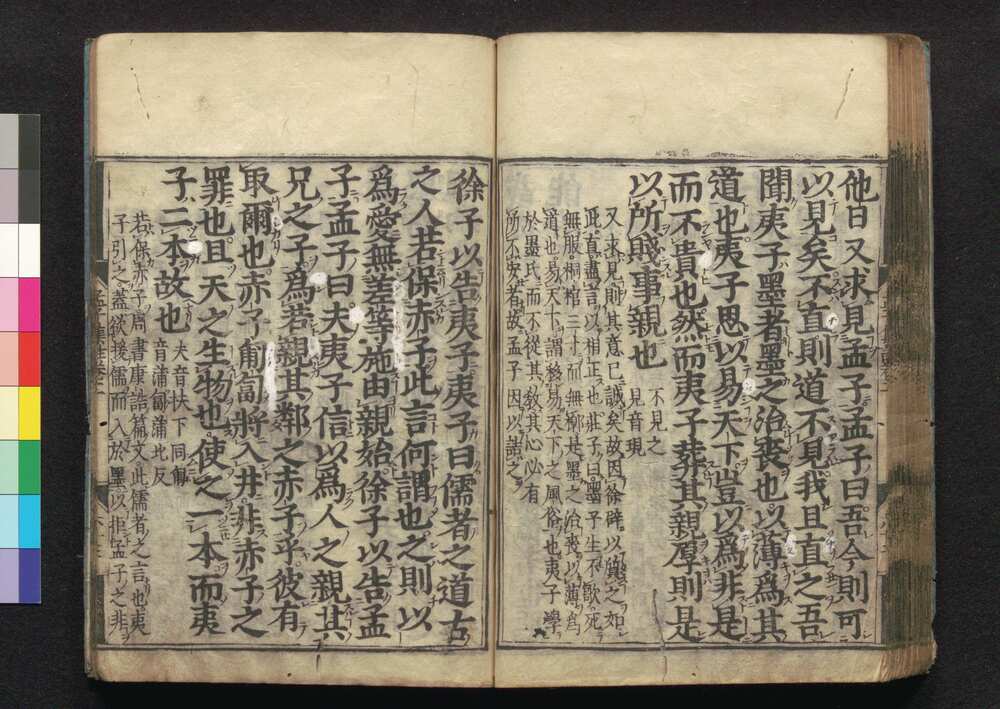 他日又求見孟子孟子曰吾今則可
以見矣不直則道不見我且直之吾
聞夷子墨者墨之治喪也以薄爲其
道也夷子思以易天下豈以爲非是
而不貴也然而夷子葬其親厚則是
以所賤事親也
不見之
見音現
又求見則其意已誠矣故因徐辟以質之如
此直盡言以相正也莊子曰墨子生不歌死
無服桐棺三寸而無槨是墨之治喪以薄爲
道也易天下謂移易天下之風俗也夷子學
於墨氏而不從其敎其心必有
所不安者故孟子因以詰之
徐子以告夷子夷子曰儒者之道古
之人若保赤子此言何謂也之則以
爲愛無差等施由親始徐子以告孟
子孟子曰夫夷子信以爲人之親其
兄之子爲若親其鄰之赤子乎彼有
取爾也赤子匍匐將入井非赤子之
罪也且天之生物也使之一本而夷
子二本故也
夫音扶下同匍
音蒲匐蒲北反
若保赤子周書康誥篇文此儒者之言也夷
子引之蓋欲援儒而入於墨以拒孟子之非